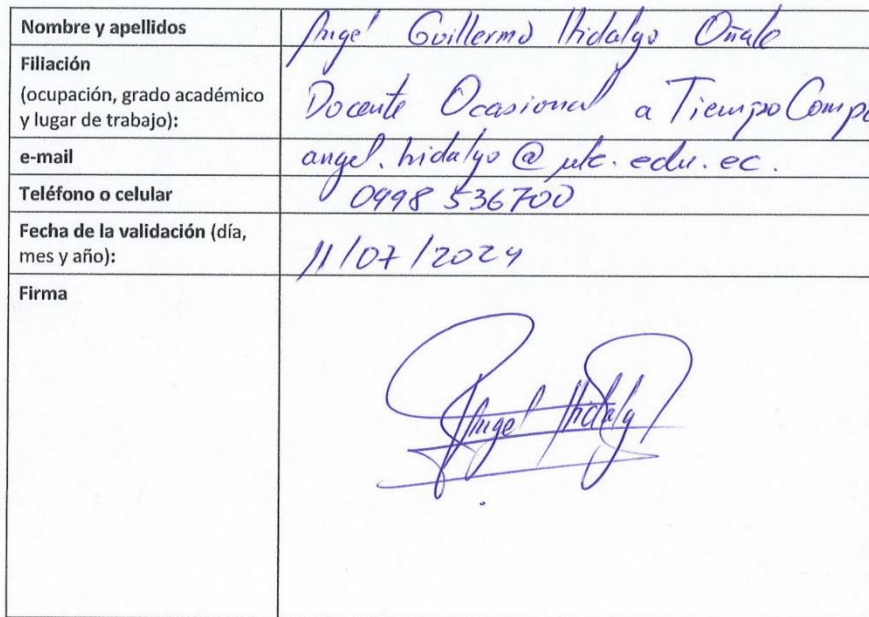 Nombre y apellidos
Angel Guillermo Hidalgo Oñate
Filiación
(ocupación, grado académico
y lugar de trabajo):
Docente Ocasional a Tiempo Comp
e-mail
angel.hidalgo@utc.edu.ec.
Teléfono o celular
0998 536700
Fecha de la validación (día,
mes y año):
11/07/2024
Firma
Angel Hidalgo